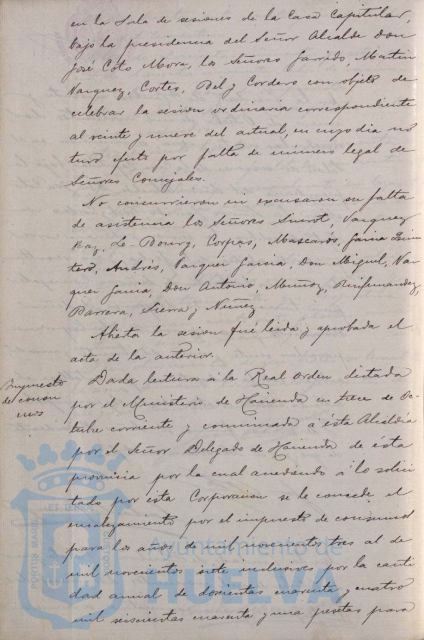 en la Sala de sesiones de la Casa Capitular,
bajo la presidencia del Señor Alcalde Don
José Coto Mora, los Señores Garrido, Martin
Vazquez, Cortes, Del y Cordero con objeto de
celebrar la sesion ordinaria correspondiente
al veinte y nueve del actual, en cuyo dia no
tuvo efecto por falta de número legal de
Señores Concejales.
No concurrieron ni escusaron su falta
de asistencia los Señores Vazquez
Le-Bourg, Corpas, Mascarós, Garcia
Andrés, Vazquez Garcia, Don Miguel, Vaz
quez Garcia, Don Antonio, Muñoz,
Barrera, Sierra y Nuñez.
Abierta la sesion fué leida y aprobada el
acta de la anterior.
Impuesto
de consu
mos
Dada lectura á la Real Orden dictada
por el Ministerio de Hacienda en trece de Oc-
tubre corriente y comunicada á ésta Alcaldia
por el Señor Delegado de Hacienda de ésta
provincia por la cual accediendo á lo solici
tado por ésta Corporacion se le concede el
encabezamiento por el impuesto de consumos
para los años de mil novecientos tres al de
mil novecientos siete inclusives por la canti
dad anual de doscientas cuarenta y cuatro
mil seiscientas cuarenta y una pesetas para
Ayuntamiento de
HUELVA